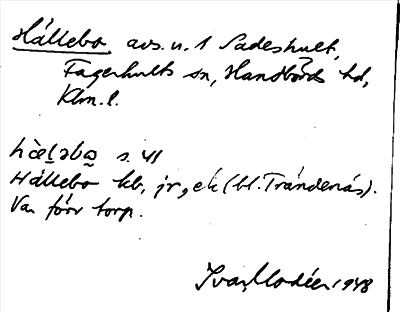 Hállebo avs. u. 1 Sadeshult,
Fagerhults sn, Handbörds hd,
Klm. l.
s. 41
Hállebo kb, jr, ek (bl. Trándenäs).
Var förr torp.
Ivar Modéer 1948